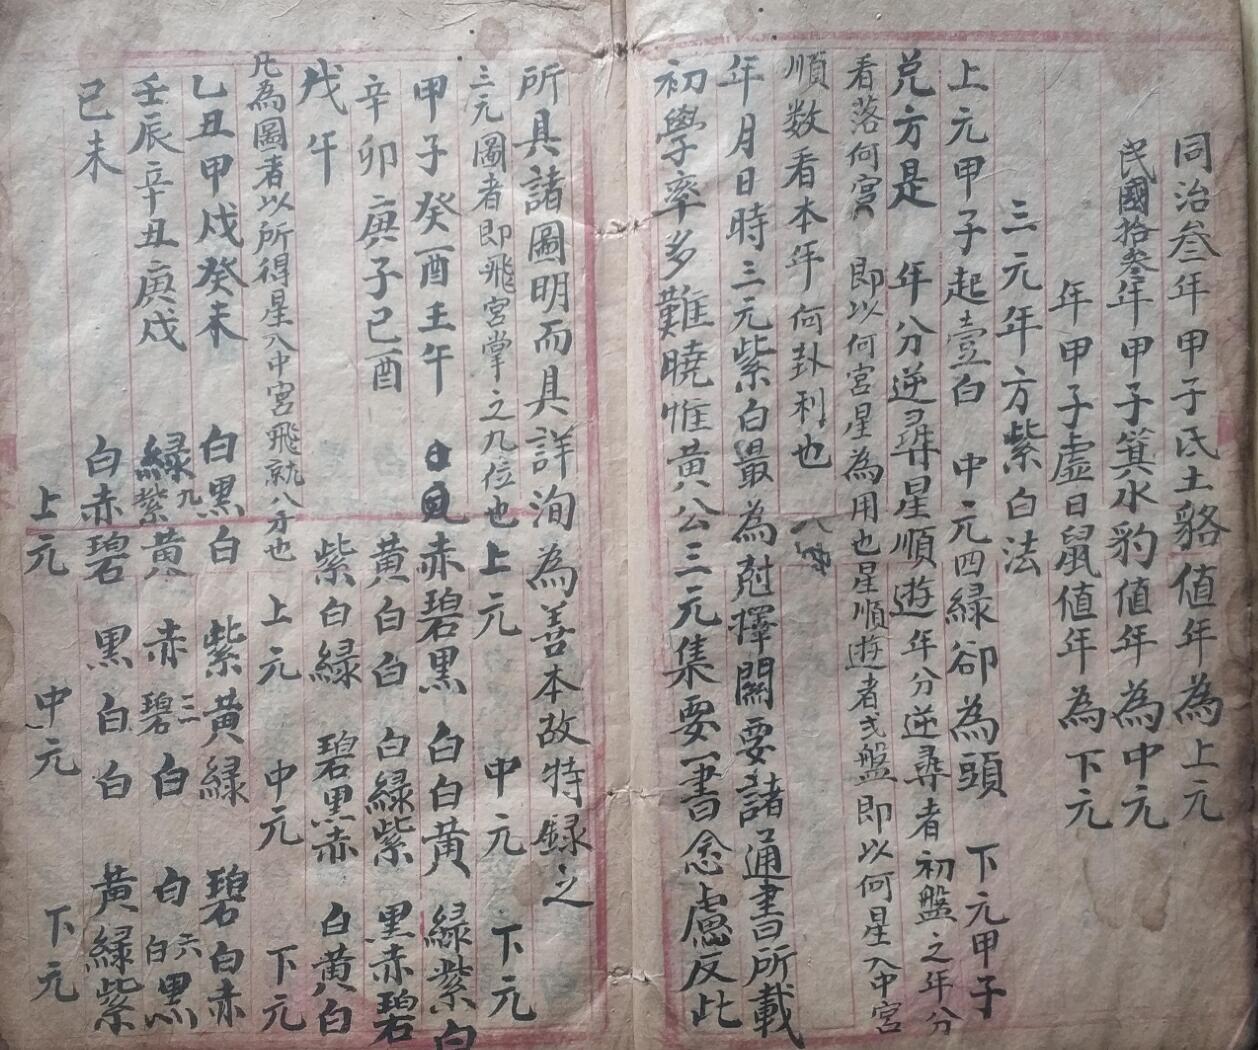 同治叁年甲子氐土貉值年為上元
民國拾叁年甲子箕水豹值年為中元
年甲子虛日鼠值年為下元
三元年方紫白法
上元甲子起壹白 中元四緑卻為頭 下元甲子
兌方是 年分逆尋星順遊 年分逆尋者初盤之年分
看落何宮 即以何宮星為用也 星順遊者弍盤即以何星入中宮
順数看本年何卦利也 八
年月日時三元紫白最為尅擇關要諸通書所載
初學率多難曉惟黄公三元集要一書念慮反此
所具諸圖明而具詳洵為善本故特録之
三元圖者即飛宮掌之九位也 上元 中元 下元
甲子癸酉壬午 白 赤碧黒 白白黄 緑紫白
辛卯庚子己酉 黄白白 白緑紫 黒赤碧
戊午 紫白緑 碧黒赤 白黄白
凡為圖者以所得星入中宮飛就八方也 上元 中元 下元
乙丑甲戌癸未 白黒白 紫黄緑 碧白赤
壬辰辛丑庚戌 緑紫九黄 赤碧三白 白白六黒
己未 白赤碧 黒白白 黄緑紫
上元 中元 下元